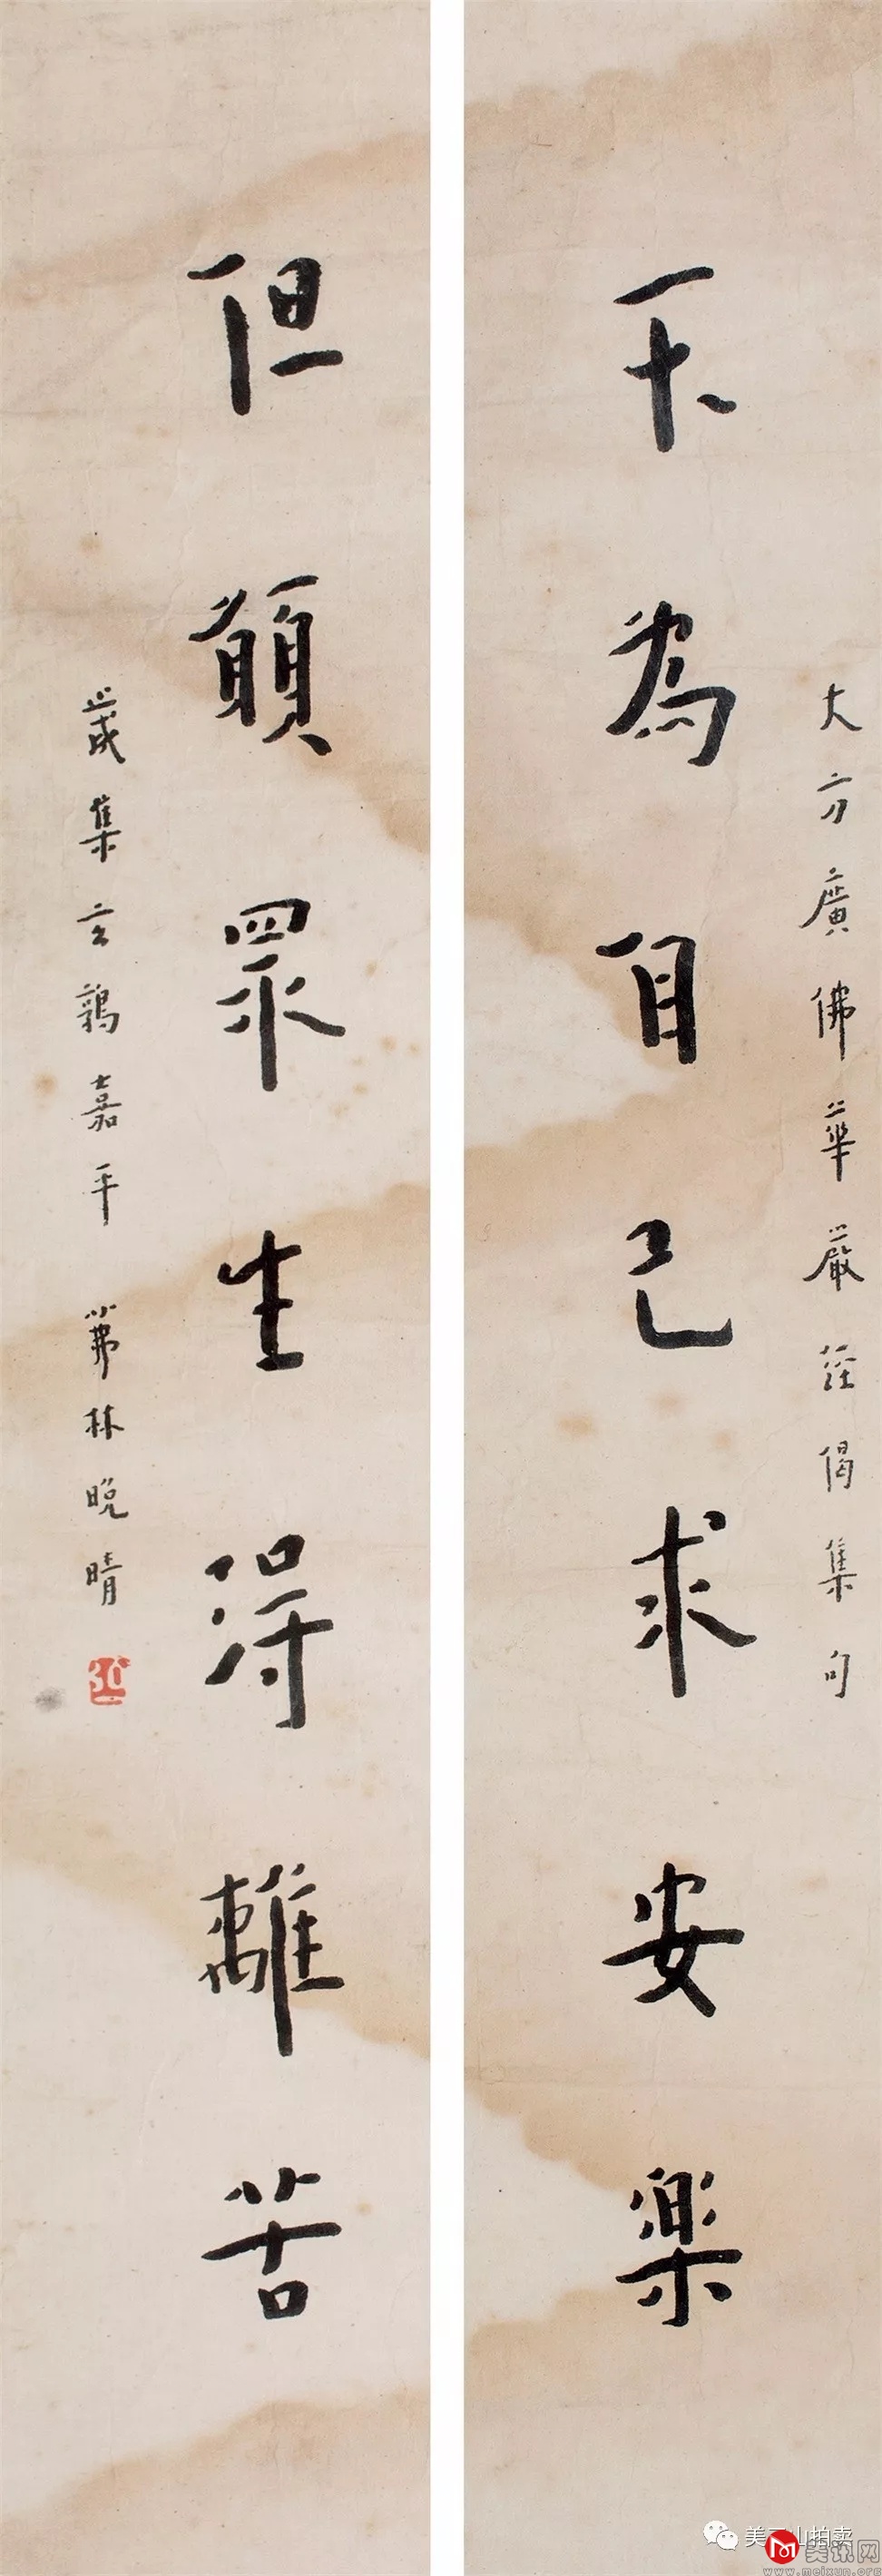 大方廣佛華嚴經偈集句
不為自己求安樂
但願眾生得離苦
歲集玄鶉嘉平 茀林晚晴
美三山拍卖
美讯网
www.meixun.org